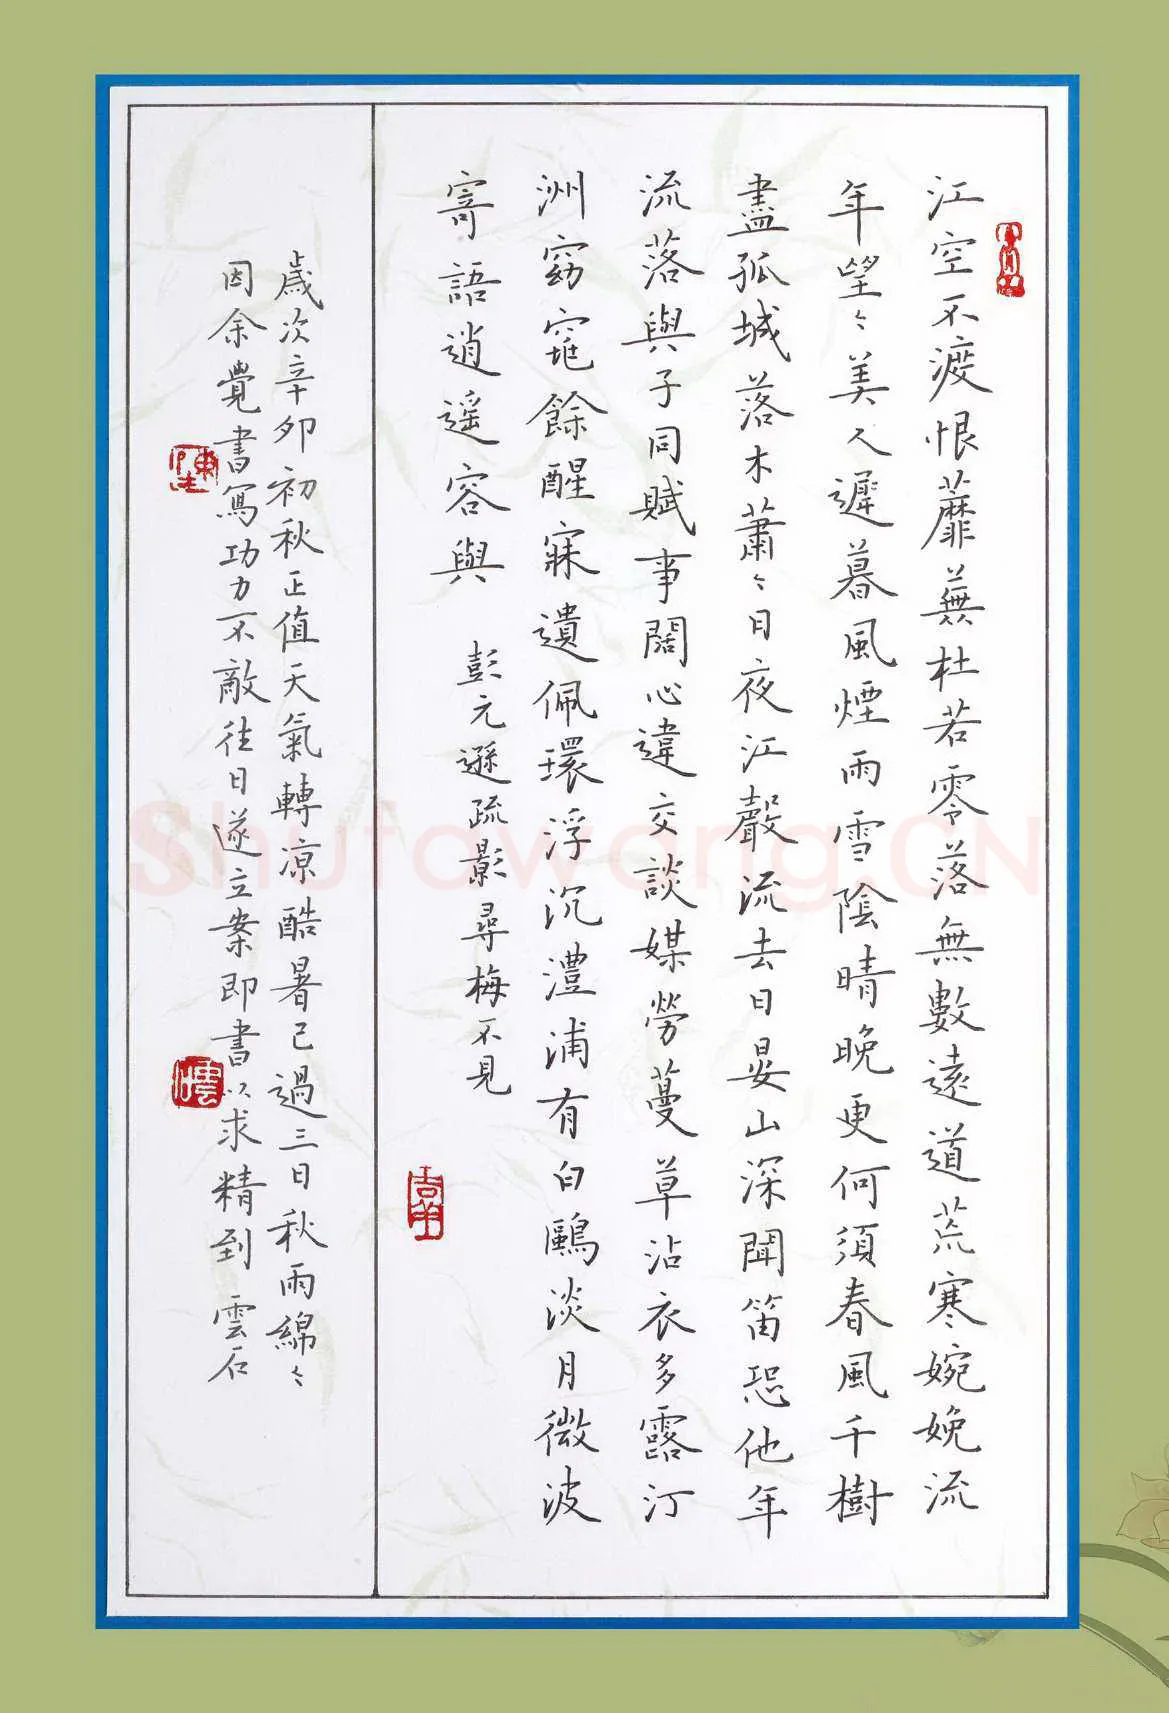 江空不渡恨蘼蕪杜若零落無數遠道荒寒婉娩流
年望〻美人遲暮風煙雨雪陰晴晚更何須春風千樹
盡孤城落木蕭〻日夜江聲流去日晏山深聞笛恐他年
流落與子同賦事闊心違交談媒勞蔓草沾衣多露汀
洲窈窕餘醒寐遺佩環浮沉澧浦有白鷗淡月微波
寄語逍遙容與 彭元遜疏影尋梅不見
歲次辛卯初秋正值天氣轉凉酷暑已過三日秋雨綿〻
因余覺書寫功力不敵往日遂立案即書以求精到 雲石
Shufawang.CN